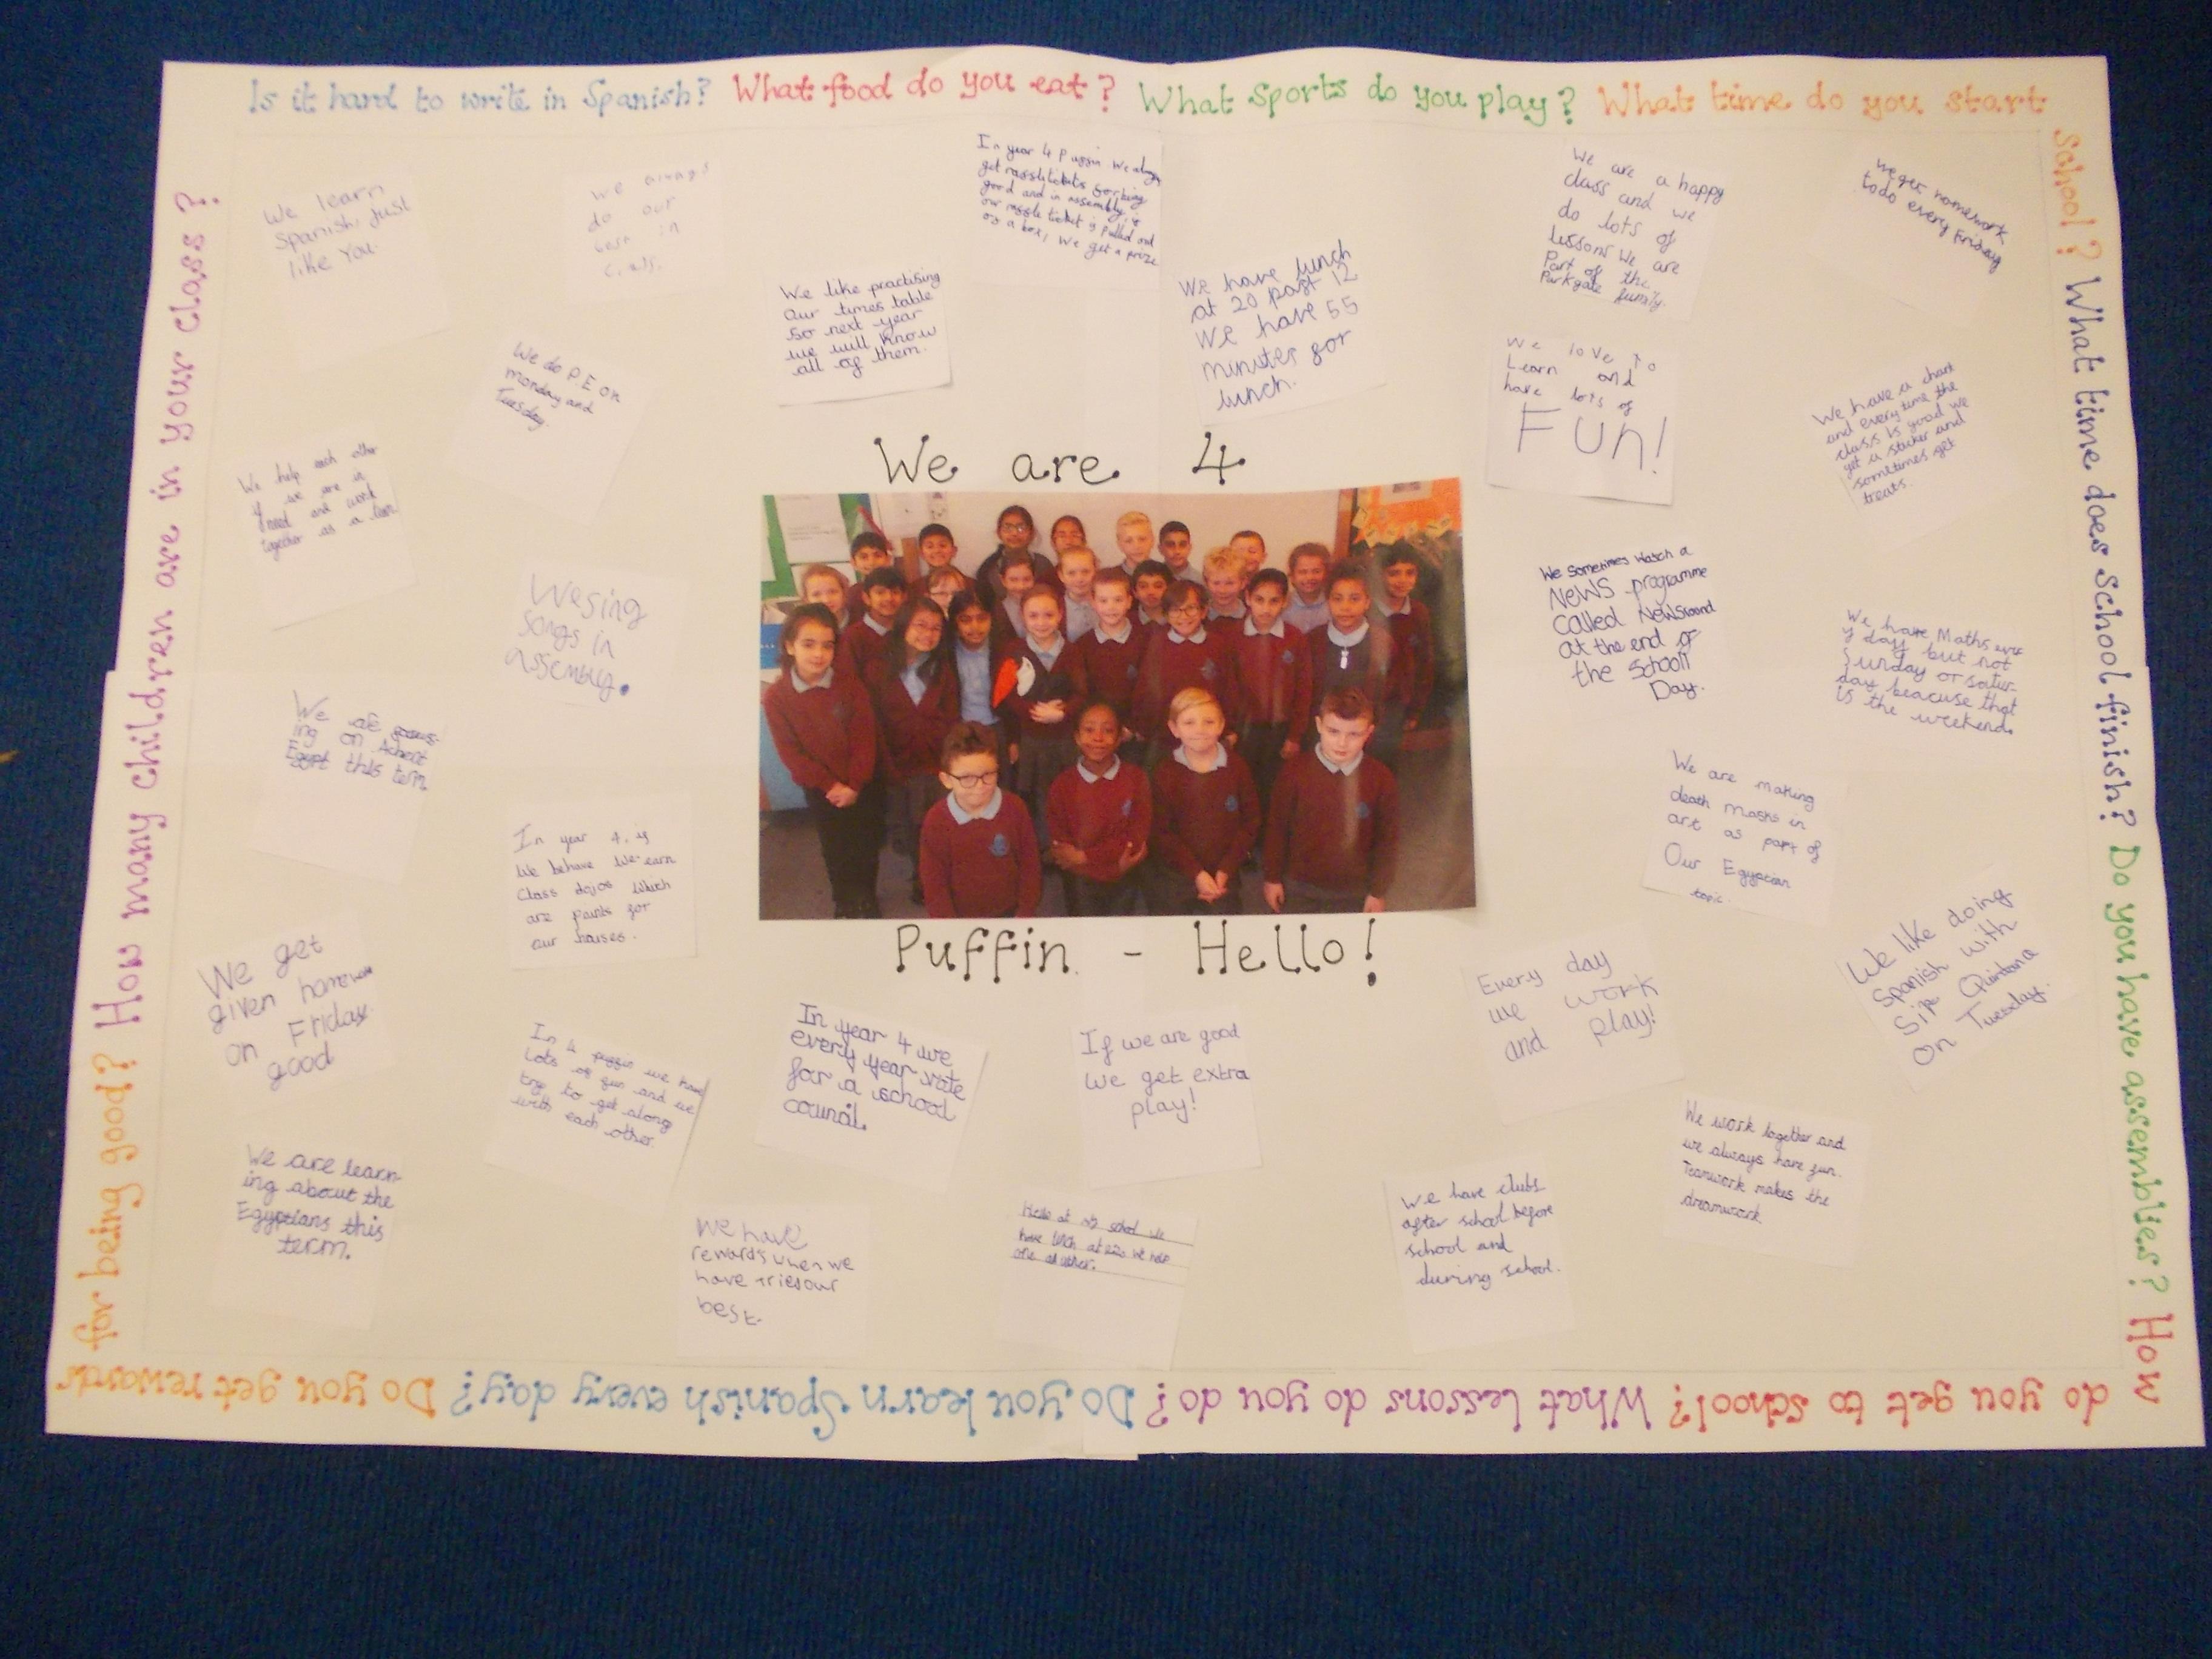 Is it hard to write in Spanish? What food do you eat? What sports do you play? What time do you start
school? What time does school finish? Do you have assemblies? How
do you get to school? What lessons do you do? Do you learn Spanish every day? Do you get rewards
for being good? How many children are in your class?
We learn
Spanish, just
like You.
we always
do our
best in
class.
In year 4 Puffin We always
get raffle tickets for being
good and in assembly, if
our raffle ticket is pulled out
of a box, We get a prize
We are a happy
class and we
do lots of
lessons We are
Part of the
Parkgate family.
we get homework
todo every Friday
We like practising
our times table
so next year
we will know
all of them.
We have lunch
at 20 past 12
We have 55
minutes for
lunch.
We do P.E on
monday and
Tuesday.
We love to
Learn and
have lots of
FUn!
We have a chart
and every time the
class is good we
get a sticker and
sometimes get
treats.
We help each other
if we are in
need and work
together as a team
We are 4
Puffin - Hello!
We sing
songs in
assembly.
We sometimes watch a
NeWS programme
called Newsround
at the end of
the School
Day.
We have Maths ever
y day but not
Sunday or satur-
day beacuse that
is the weekend.
We are
ing on
Egypt this term
We are making
death masks in
art as part of
Our Egyptian
topic.
In year 4, if
We behave We earn
Class dojos Which
are points for
our houses.
We like doing
Spanish with
Sir Quintana
on Tuesday.
We get
given homework
on Friday
good
Every day
we work
and play!
In 4 puffin we have
lots of fun and we
try to get along
with each other.
In year 4 we
every year vote
for a school
council.
If we are good
We get extra
play!
We work together and
we always have fun.
Teamwork makes the
dreamwork
We are learn-
ing about the
Egyptians this
term.
We have
rewards when we
have tried our
best.
Hello at my school we
have lunch at
one another.
We have clubs
after school before
school and
during school.